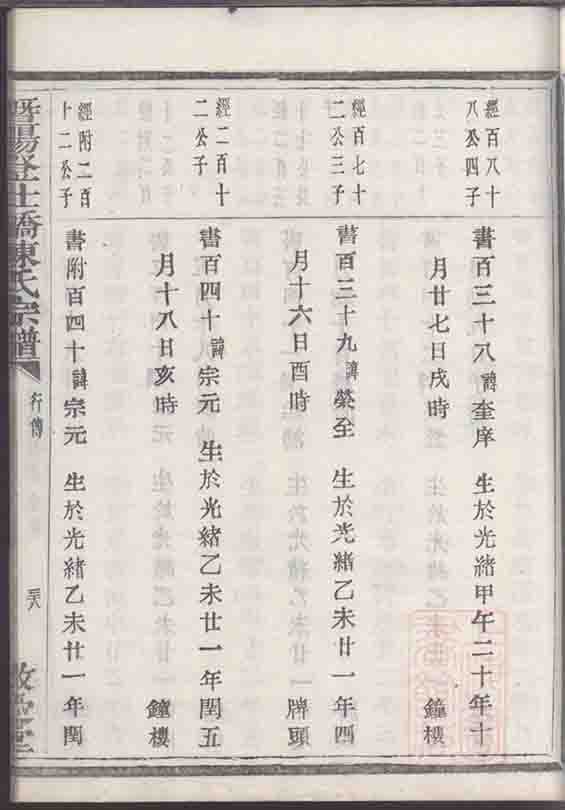 經百八十
八公四子
書百三十八諱奎庠 生於光緒甲午二十年十
月廿七日戌時 鐘樓
經百七十
二公三子
書百三十九諱榮全 生於光緒乙未廿一年四
月十六日酉時 牌頭
經二百十
二公子
書百四十諱宗元 生於光緒乙未廿一年閏五
月十八日亥時 鐘樓
經附二百
十二公子
書附百四十諱宗元 生於光緒乙未廿一年閏
暨陽登仕橋陳氏宗譜
行傳